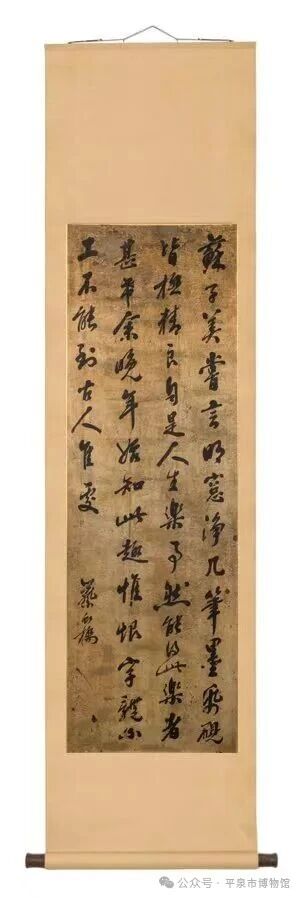 蘇子美嘗言明窓淨几筆墨紙硯
皆極精良自是人生樂事然能得此樂者
甚希余晚年始知此趣惟恨字體不
工不能到古人佳處
公众号 · 平泉市博物馆